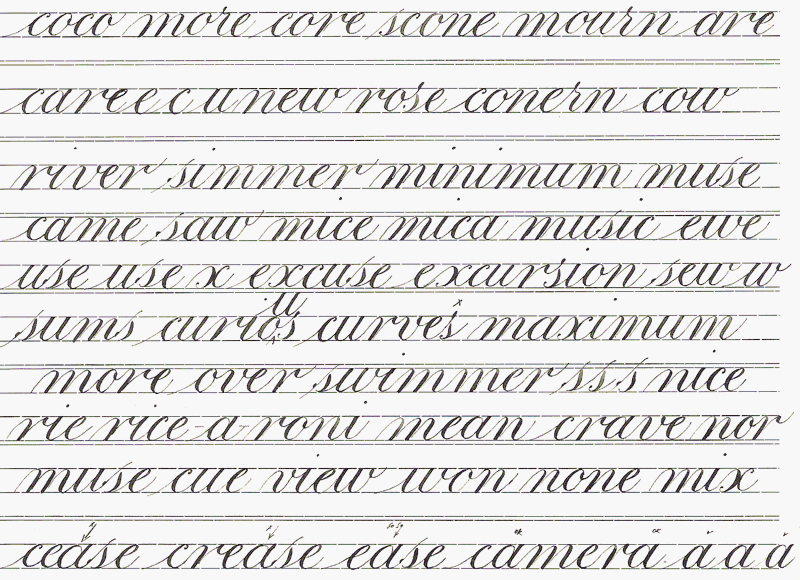 coco more core scone mourn are
career c u new rose conern cow
river simmer minimum muse
came saw mice mica music ewe
use use x excuse excursion sew w
sums curios curves maximum
more over swimmer s s s nice
rie rice-a-roni mean crave nor
muse cue view won none mix
cease crease ease camera a a a